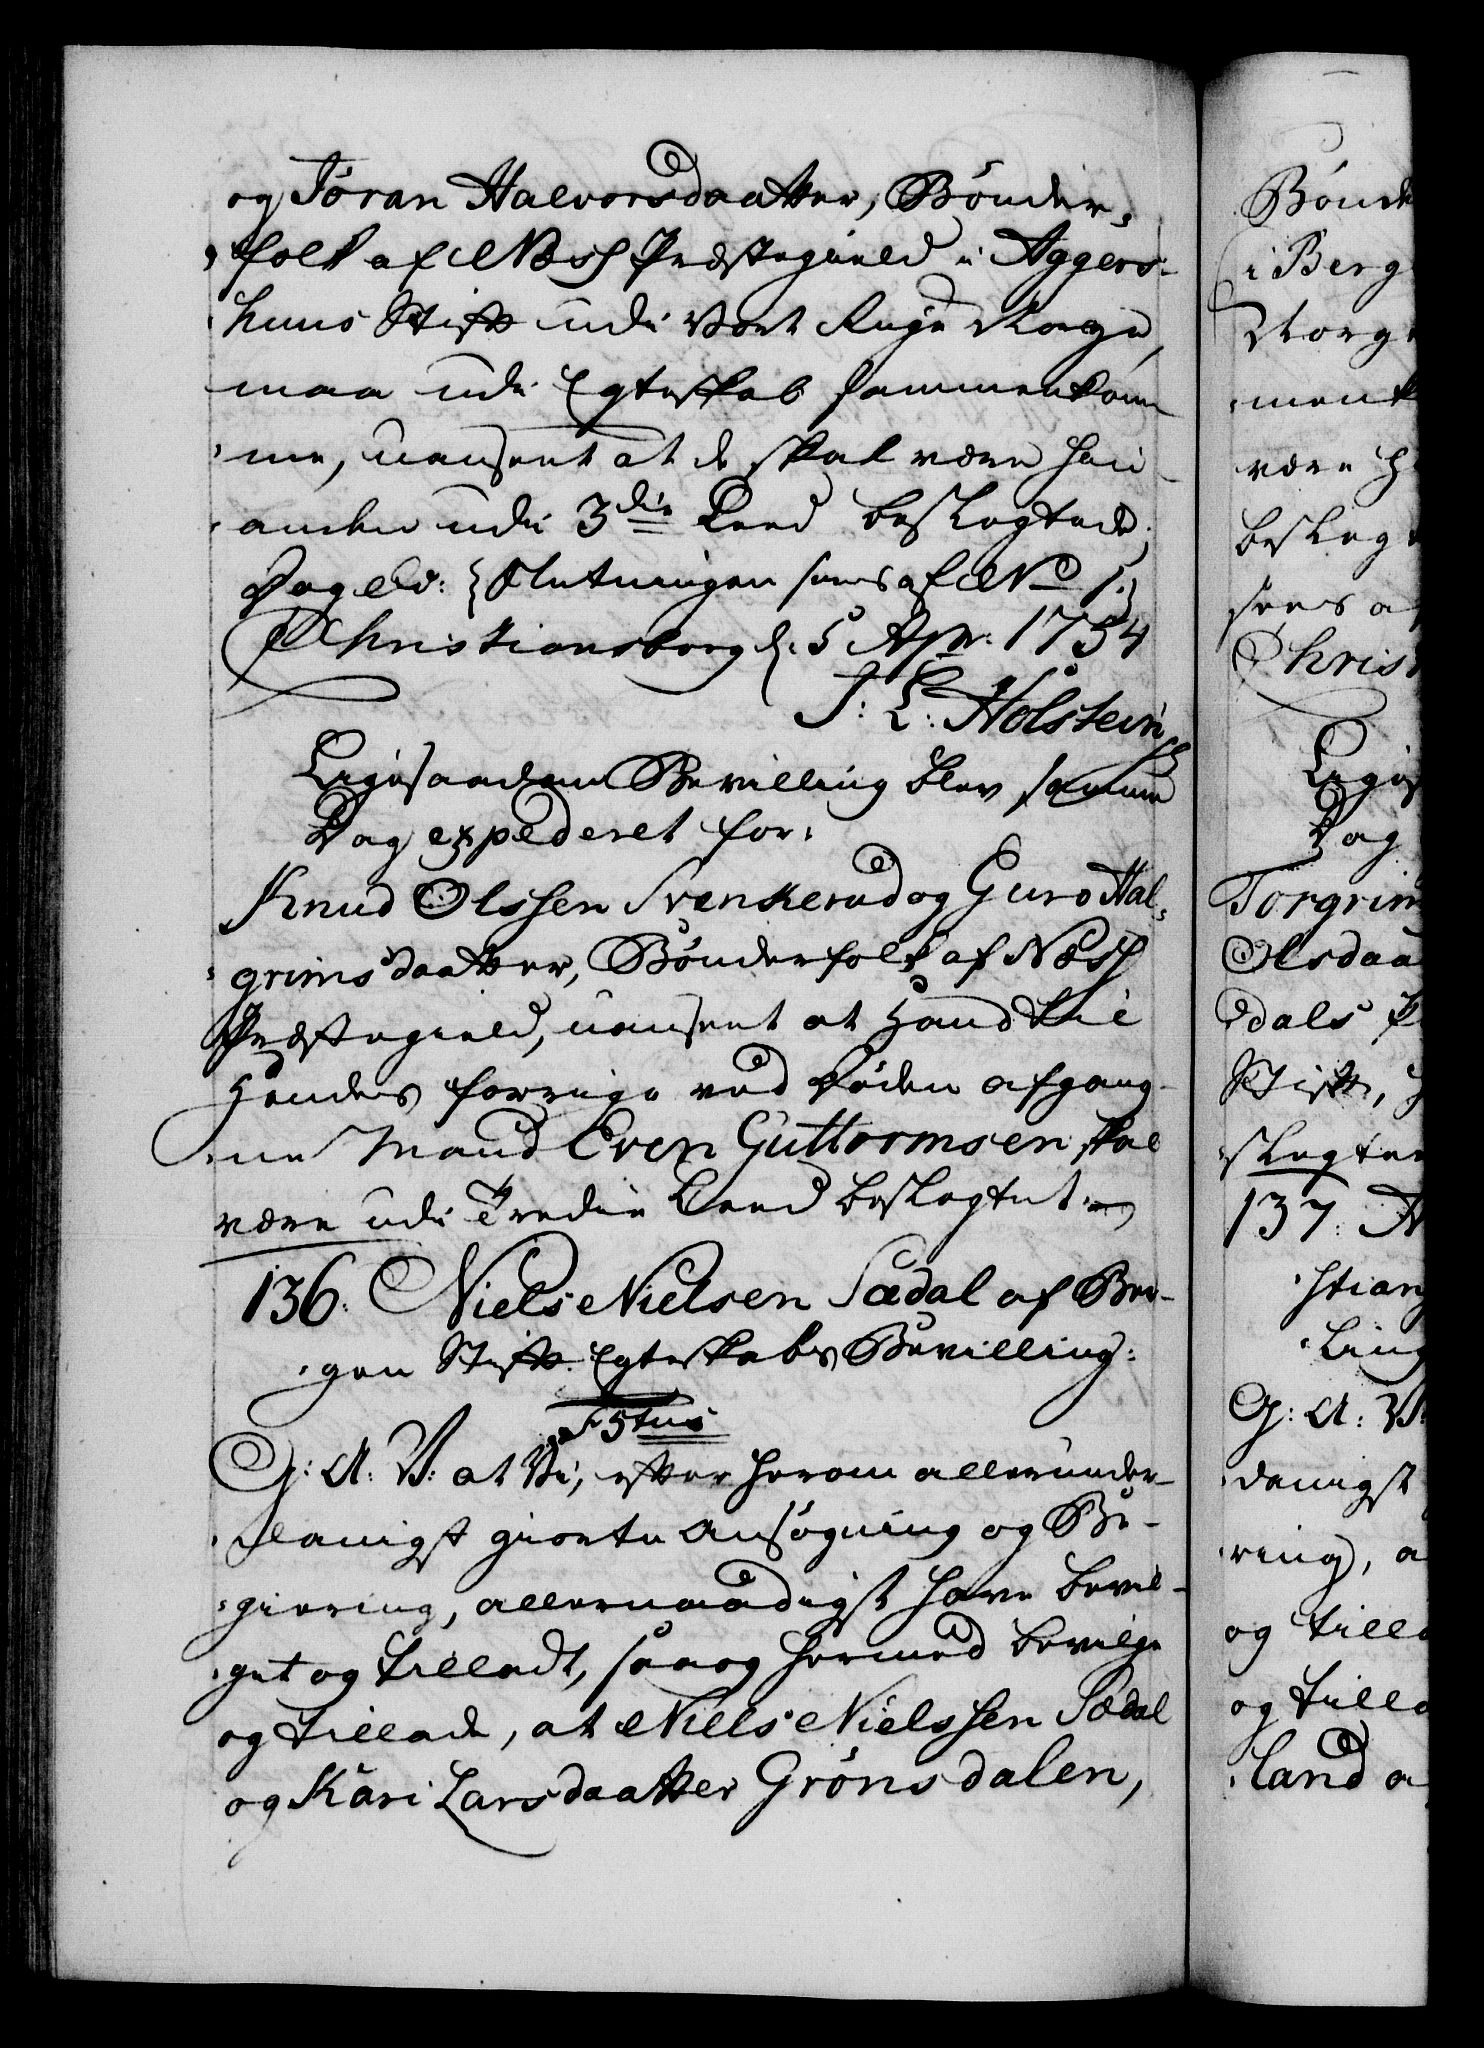 og Jöran Halvorsdaatter, Bönder-
folk af Næss Præstegield i Aggers-
huus Stift udi Vort Rige Norge,
maa udi Egteskab sammenkom-
me, uanseet at de skal være hin-
anden udi 3die Leed beslegtede.
Dog &c: {Slutningen sees af No 1.}
Christiansborg d: 5 Apr: 1754
J: L: Holstein
Ligesaadan Bevilling blev samme
Dag expederet for:
Knud Olssen Svenkerud og Guro Hal-
grimsdaatter, Bönderfolk af Næss
Præstegield, uanseet at Hand til
Hendes forrige ved Döden afgang-
ne Mand Even Guttormsen skal
være udi Tredie Leed beslegtet.
136. Niels Nielsen Sædal af Ber-
gen Stift Egteskabs Bevilling:
F 5tus
G: A: V: at Vi, efter herom allerunder-
danigst giorte Ansögning og Be-
giering, allernaadigst have bevil-
get og tilladt, saa og hermed bevilge
og tillade, at Niels Nielssen Sædal
og Kari Larsdaatter Grönsdalen,
Bönde
i Berg
Norge
menk
være
besleg
sees a
Christ
Liges
Dag
Torgrim
Olsdaa
dals P
Stift,
slegte
137.
stians
ling
G: A: V:
danigst
ring, a
og tilla
og tilla
land o